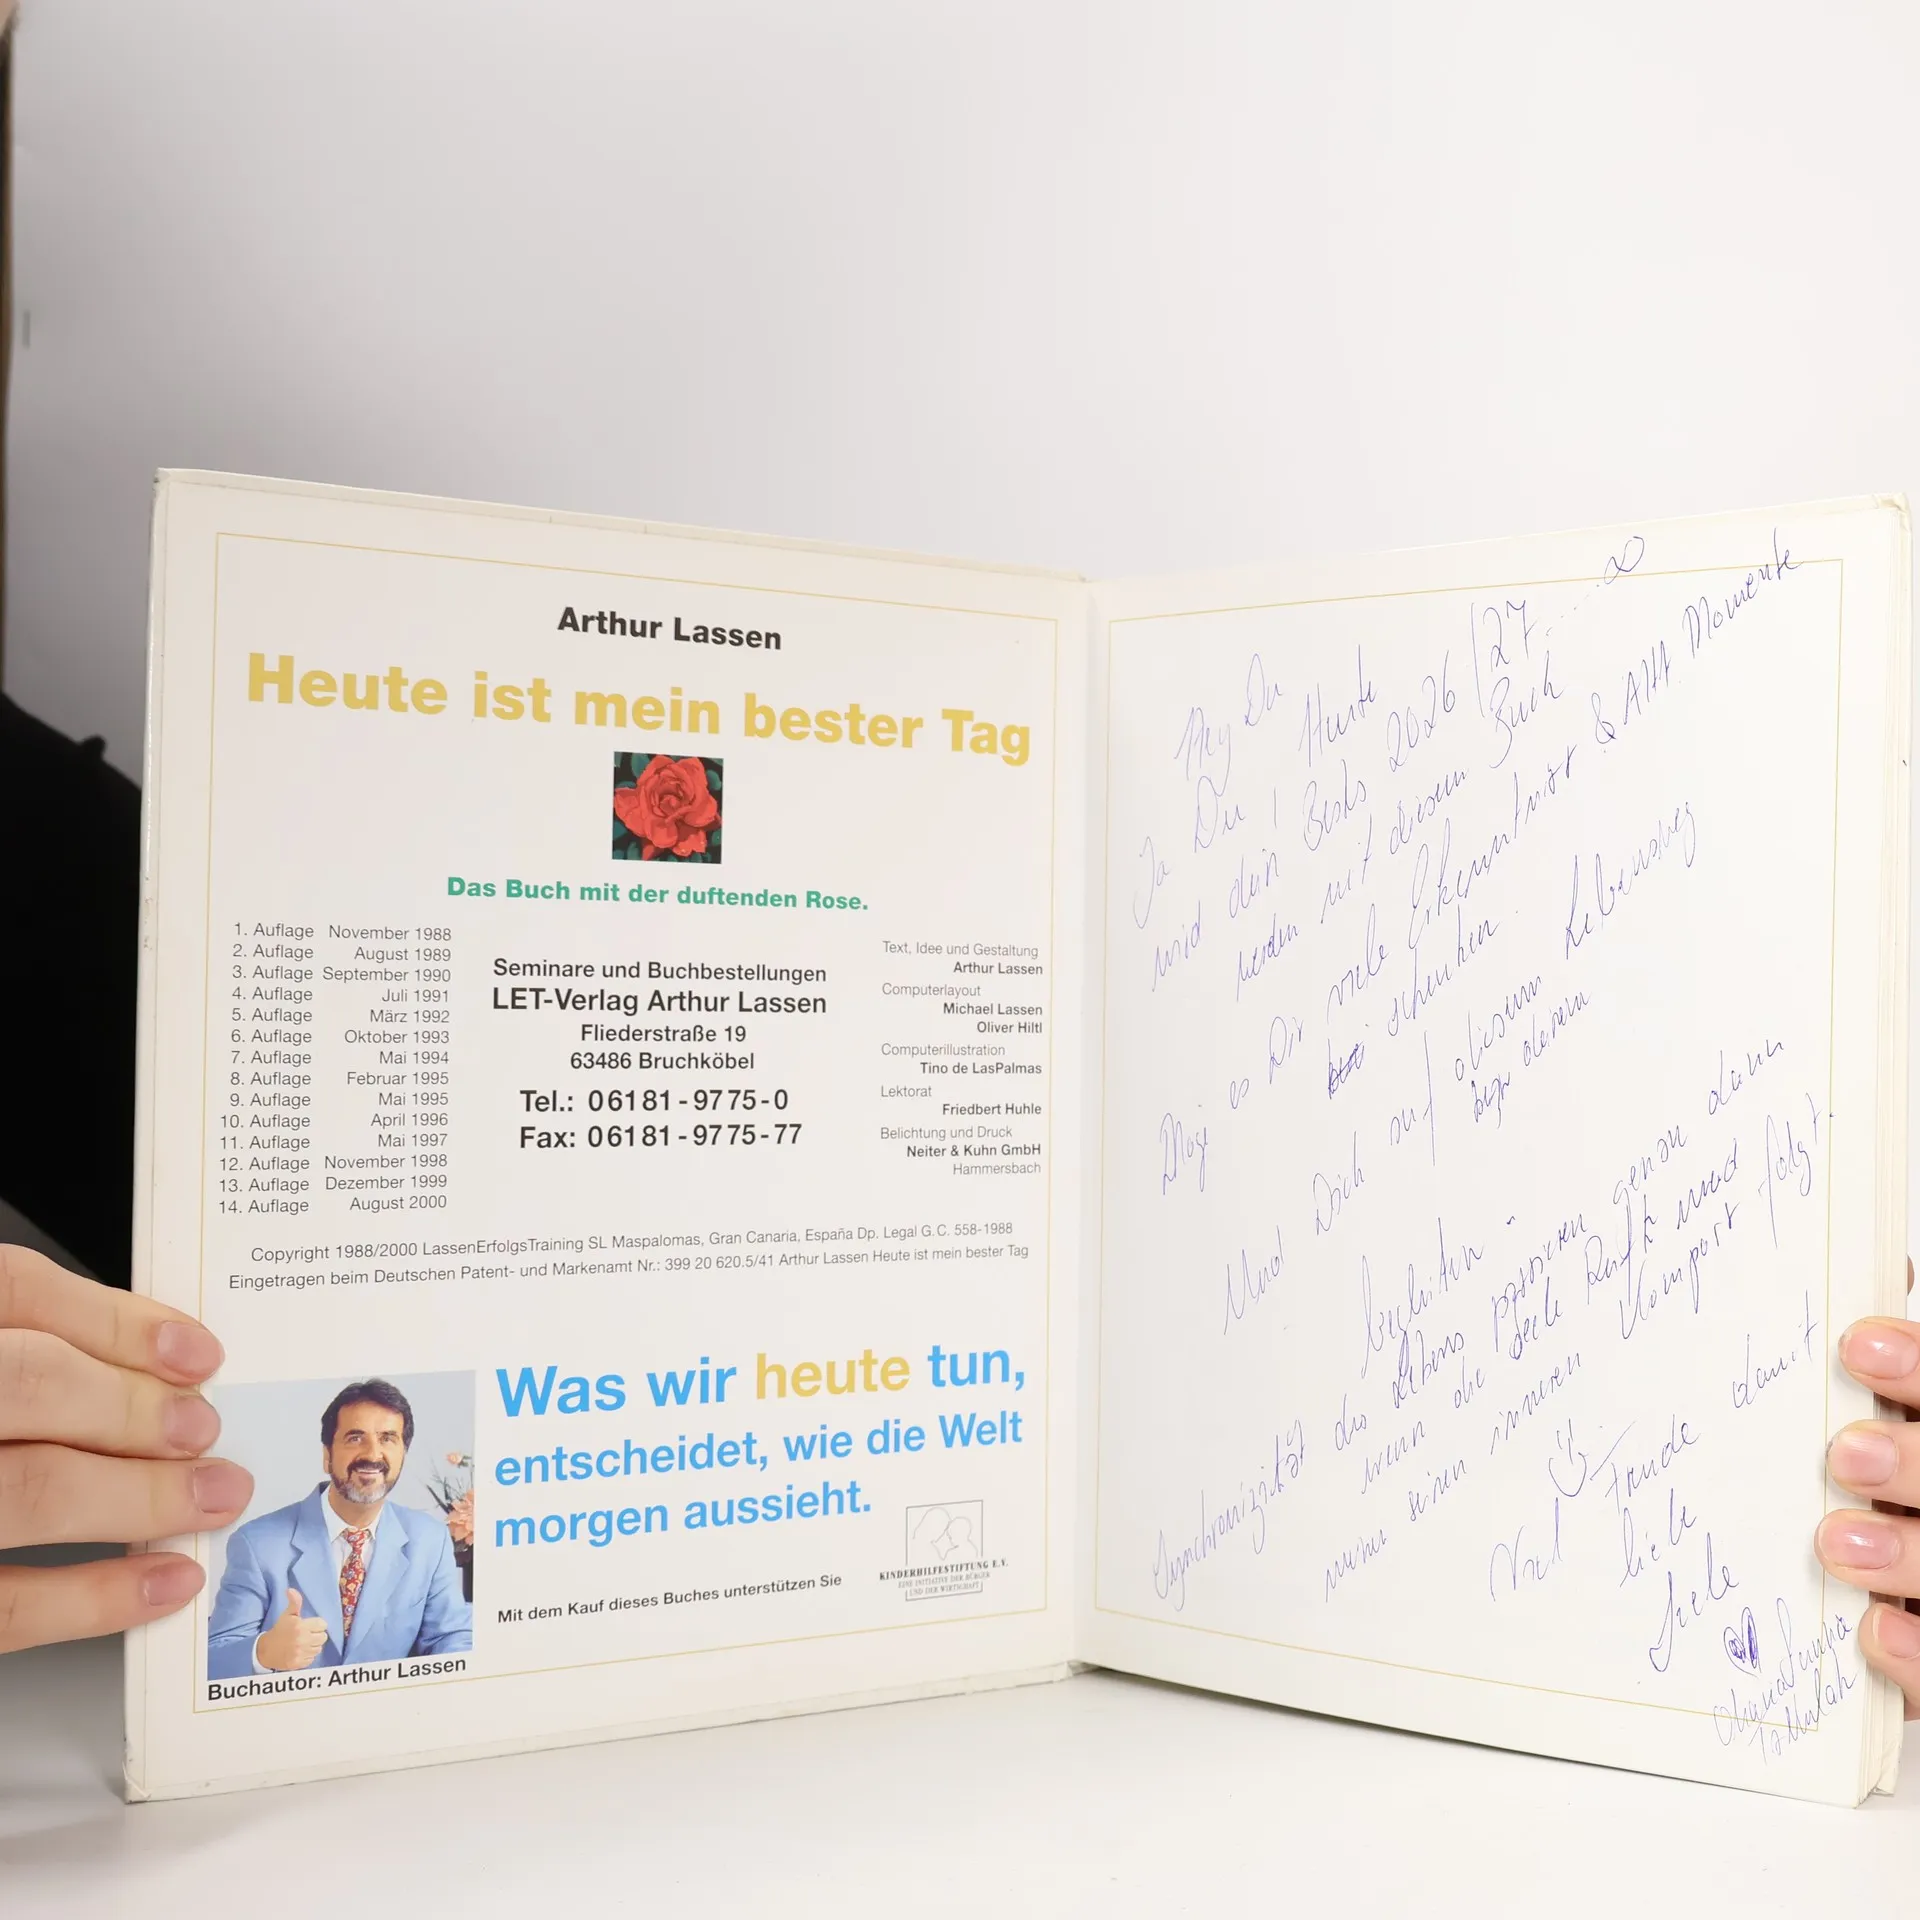 Arthur Lassen
Heute ist mein bester Tag
Das Buch mit der duftenden Rose.
1. Auflage November 1988
2. Auflage August 1989
3. Auflage September 1990
4. Auflage Juli 1991
5. Auflage März 1992
6. Auflage Oktober 1993
7. Auflage Mai 1994
8. Auflage Februar 1995
9. Auflage Mai 1995
10. Auflage April 1996
11. Auflage Mai 1997
12. Auflage November 1998
13. Auflage Dezember 1999
14. Auflage August 2000
Seminare und Buchbestellungen
LET-Verlag Arthur Lassen
Fliederstraße 19
63486 Bruchköbel
Tel.: 06181-9775-0
Fax: 06181-9775-77
Text, Idee und Gestaltung
Arthur Lassen
Computerlayout
Michael Lassen
Oliver Hiltl
Computerillustration
Tino de LasPalmas
Lektorat
Friedbert Huhle
Belichtung und Druck
Neiter & Kuhn GmbH
Hammersbach
Copyright 1988/2000 LassenErfolgsTraining SL Maspalomas, Gran Canaria, España Dp. Legal G.C. 558-1988
Eingetragen beim Deutschen Patent- und Markenamt Nr.: 399 20 620.5/41 Arthur Lassen Heute ist mein bester Tag
Was wir heute tun,
entscheidet, wie die Welt
morgen aussieht.
Mit dem Kauf dieses Buches unterstützen Sie
KINDERHILFESTIFTUNG E.V.
EINE INITIATIVE DER BÜRGER
UND DER WIRTSCHAFT
Buchautor: Arthur Lassen
Hey Du
Ja Du! Heute
wird dein Bestes 2026/27.....∞
werden mit diesem Buch
Möge es Dir viele Erkenntnist & AHA Momente
schenken.
Und Dich auf diesem Lebensweg
bzw deinem
begleiten
Synchronizität des Lebens passieren genau dann
wenn die Seele Ruft und
man seinen inneren Kompost folgt.
Viel Freude damit
liebe
Seele